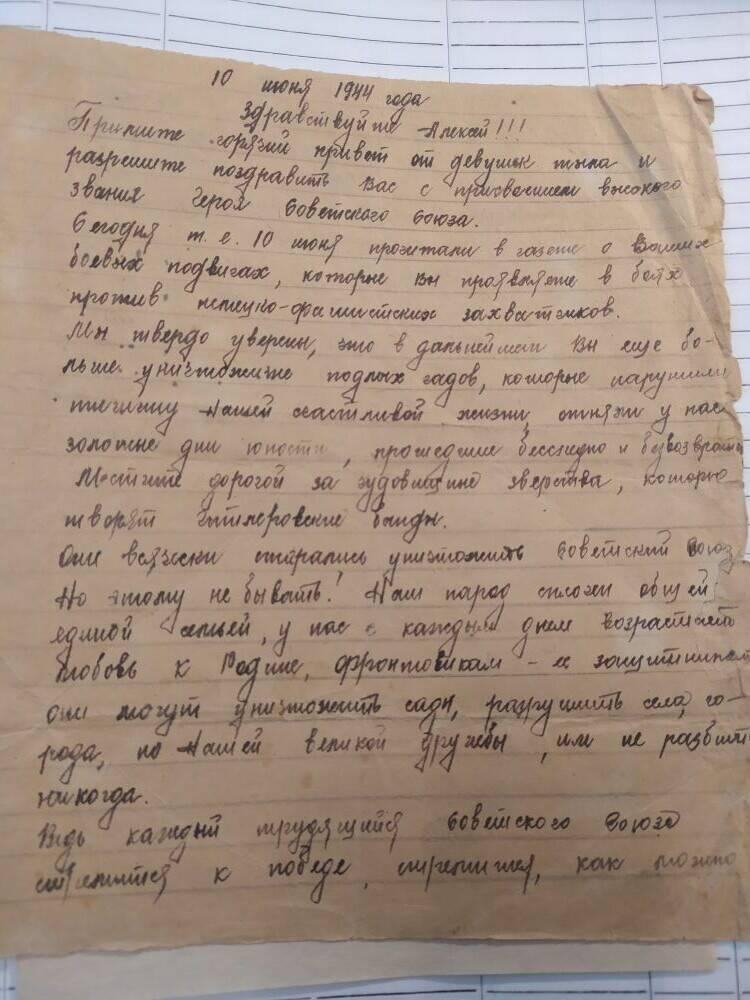 10 июня 1944 года
Здравствуйте Алексей!!!
Примите горячий привет от девушек тыла и
разрешите поздравить Вас с присвоением высокого
звания Героя Советского Союза.
Сегодня т.е. 10 июня прочитали в газете о Ваших
боевых подвигах, которые Вы проявляете в боях
против немецко-фашистских захватчиков.
Мы твердо уверены, что в дальнейшем Вы еще бо-
льше уничтожите подлых гадов, которые нарушили
тишину Нашей счастливой жизни, отняли у нас
золотые дни юности, прошедшие бесследно и безвозвратно
Мстите дорогой за чудовищные зверства, которые
творят гитлеровские банды.
Они всячески старались уничтожить Советский Союз
Но этому не бывать! Наш народ сплочен общей
единой семьей, у нас с каждым днем возрастает
любовь к Родине, фронтовикам - ее защитникам
они могут уничтожить сады, разрушить села, го-
рода, но Нашей великой дружбы, им не разбить
никогда.
Ведь каждый трудящийся Советского Союза
стремится к победе, стремится, как можно